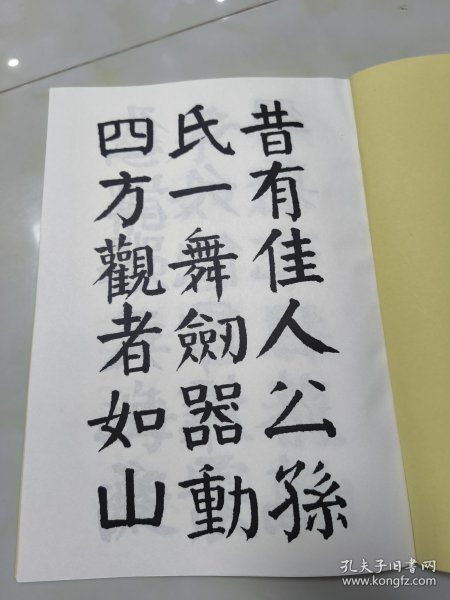 昔有佳人公孫
氏一舞劒器動
四方觀者如山
孔夫子旧书网
www.kongfz.com